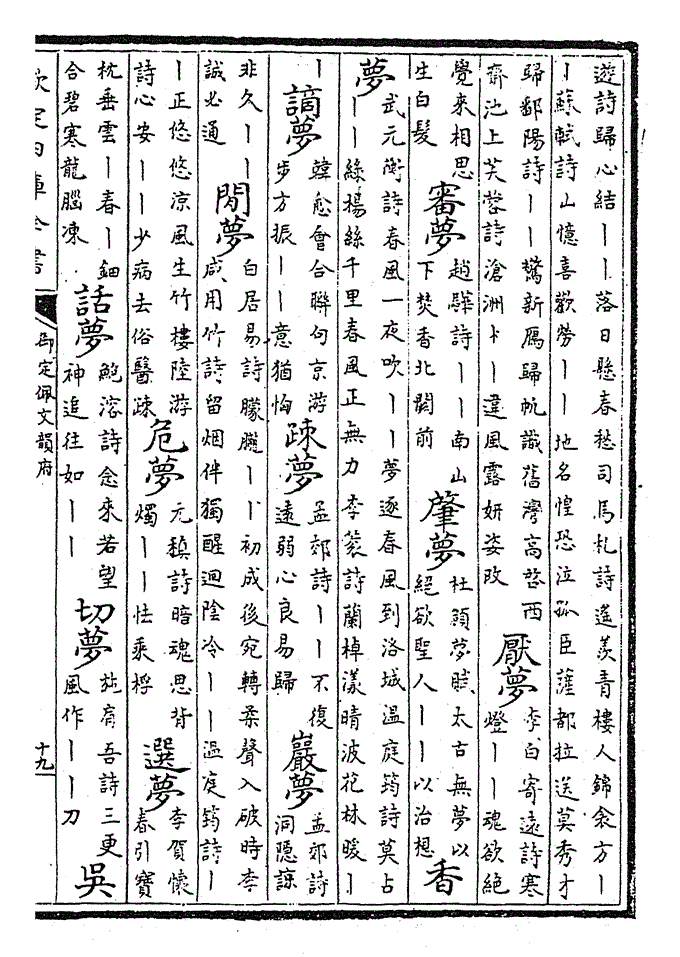 遊詩歸心結丨丨落日懸春愁司馬札詩遥羨青樓人錦衾方丨
丨蘇軾詩山憶喜歡勞丨丨地名惶恐泣孤臣薩都拉送莫秀才
歸鄱陽詩丨丨驚新雁歸帆識舊灣高啓西
齋池上芙蓉詩滄洲丨丨違風露妍姿改
厭夢
李白寄遠詩寒
燈丨丨魂欲絶
覺來相思
生白髪
審夢
趙驊詩丨丨南山
下焚香北闕前
肇夢
杜頠夢賦太古無夢以
絕欲聖人丨丨以治想
香
夢
武元衡詩春風一夜吹丨丨夢逐春風到洛城温庭筠詩莫占
丨丨綠楊絲千里春風正無力李袠詩蘭棹漾晴波花林暖丨
丨
謫夢
韓愈會合聯句京游
步方振丨丨意猶恟
疎夢
孟郊詩丨丨不復
遠弱心良易歸
巖夢
孟郊詩
洞隱諒
非久丨丨
誠必通
閒夢
白居易詩朦朧丨丨初成後宛轉柔聲入破時李
咸用竹詩留烟伴獨醒迴陰冷丨丨温庭筠詩丨
丨正悠悠涼風生竹樓陸游
詩心安丨丨少病去俗醫疎
危夢
元稹詩暗魂思背
燭丨丨怯乘桴
選夢
李賀懷
春引寶
枕垂雲丨春丨鈿
合碧寒龍腦凍
話夢
鮑溶詩念來若望
神追往如丨丨
切夢
施肩吾詩三更
風作丨丨刀
吳
欽定四庫全書
御定佩文韻府
十九